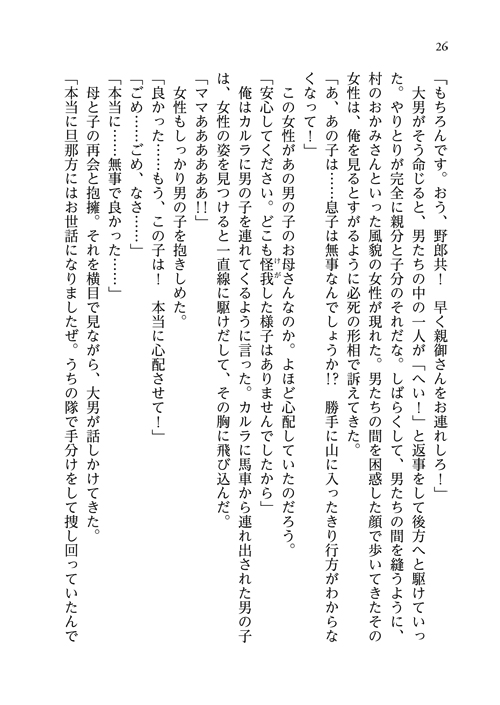 26
「もちろんです。おう、野郎共！　早く親御さんをお連れしろ！」
　大男がそう命じると、男たちの中の一人が「へい！」と返事をして後方へと駆けていっ
た。やりとりが完全に親分と子分のそれだな。しばらくして、男たちの間を縫うように、
村のおかみさんといった風貌の女性が現れた。男たちの間を困惑した顔で歩いてきたその
女性は、俺を見るとすがるように必死の形相で訴えてきた。
「あ、あの子は……息子は無事なんでしょうか!?　勝手に山に入ったきり行方がわからな
くなって！」
　この女性があの男の子のお母さんなのか。よほど心配していたのだろう。
「安心してください。どこも怪我した様子はありませんでしたから」
　俺はカルラに男の子を連れてくるように言った。カルラに馬車から連れ出された男の子
は、女性の姿を見つけると一直線に駆けだして、その胸に飛び込んだ。
「ママああああああ!!」
　女性もしっかり男の子を抱きしめた。
「良かった……もう、この子は！　本当に心配させて！」
「ごめ……ごめ、なさ……」
「本当に……無事で良かった……」
　母と子の再会と抱擁。それを横目で見ながら、大男が話しかけてきた。
「本当に旦那方にはお世話になりましたぜ。うちの隊で手分けをして捜し回っていたんで